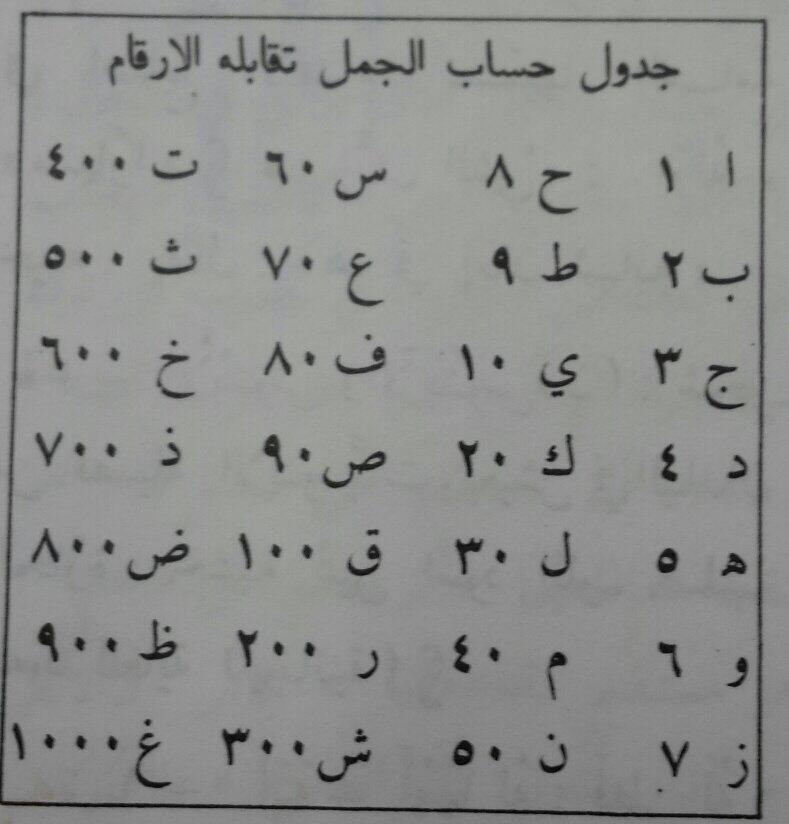 جدول حساب الجمل تقابله الارقام
ا ١ ح ٨ س ٦٠ ت ٤٠٠
ب ٢ ط ٩ ع ٧٠ ث ٥٠٠
ج ٣ ي ١٠ ف ٨٠ خ ٦٠٠
د ٤ ك ٢٠ ص ٩٠ ذ ٧٠٠
ه ٥ ل ٣٠ ق ١٠٠ ض ٨٠٠
و ٦ م ٤٠ ر ٢٠٠ ظ ٩٠٠
ز ٧ ن ٥٠ ش ٣٠٠ غ ١٠٠٠